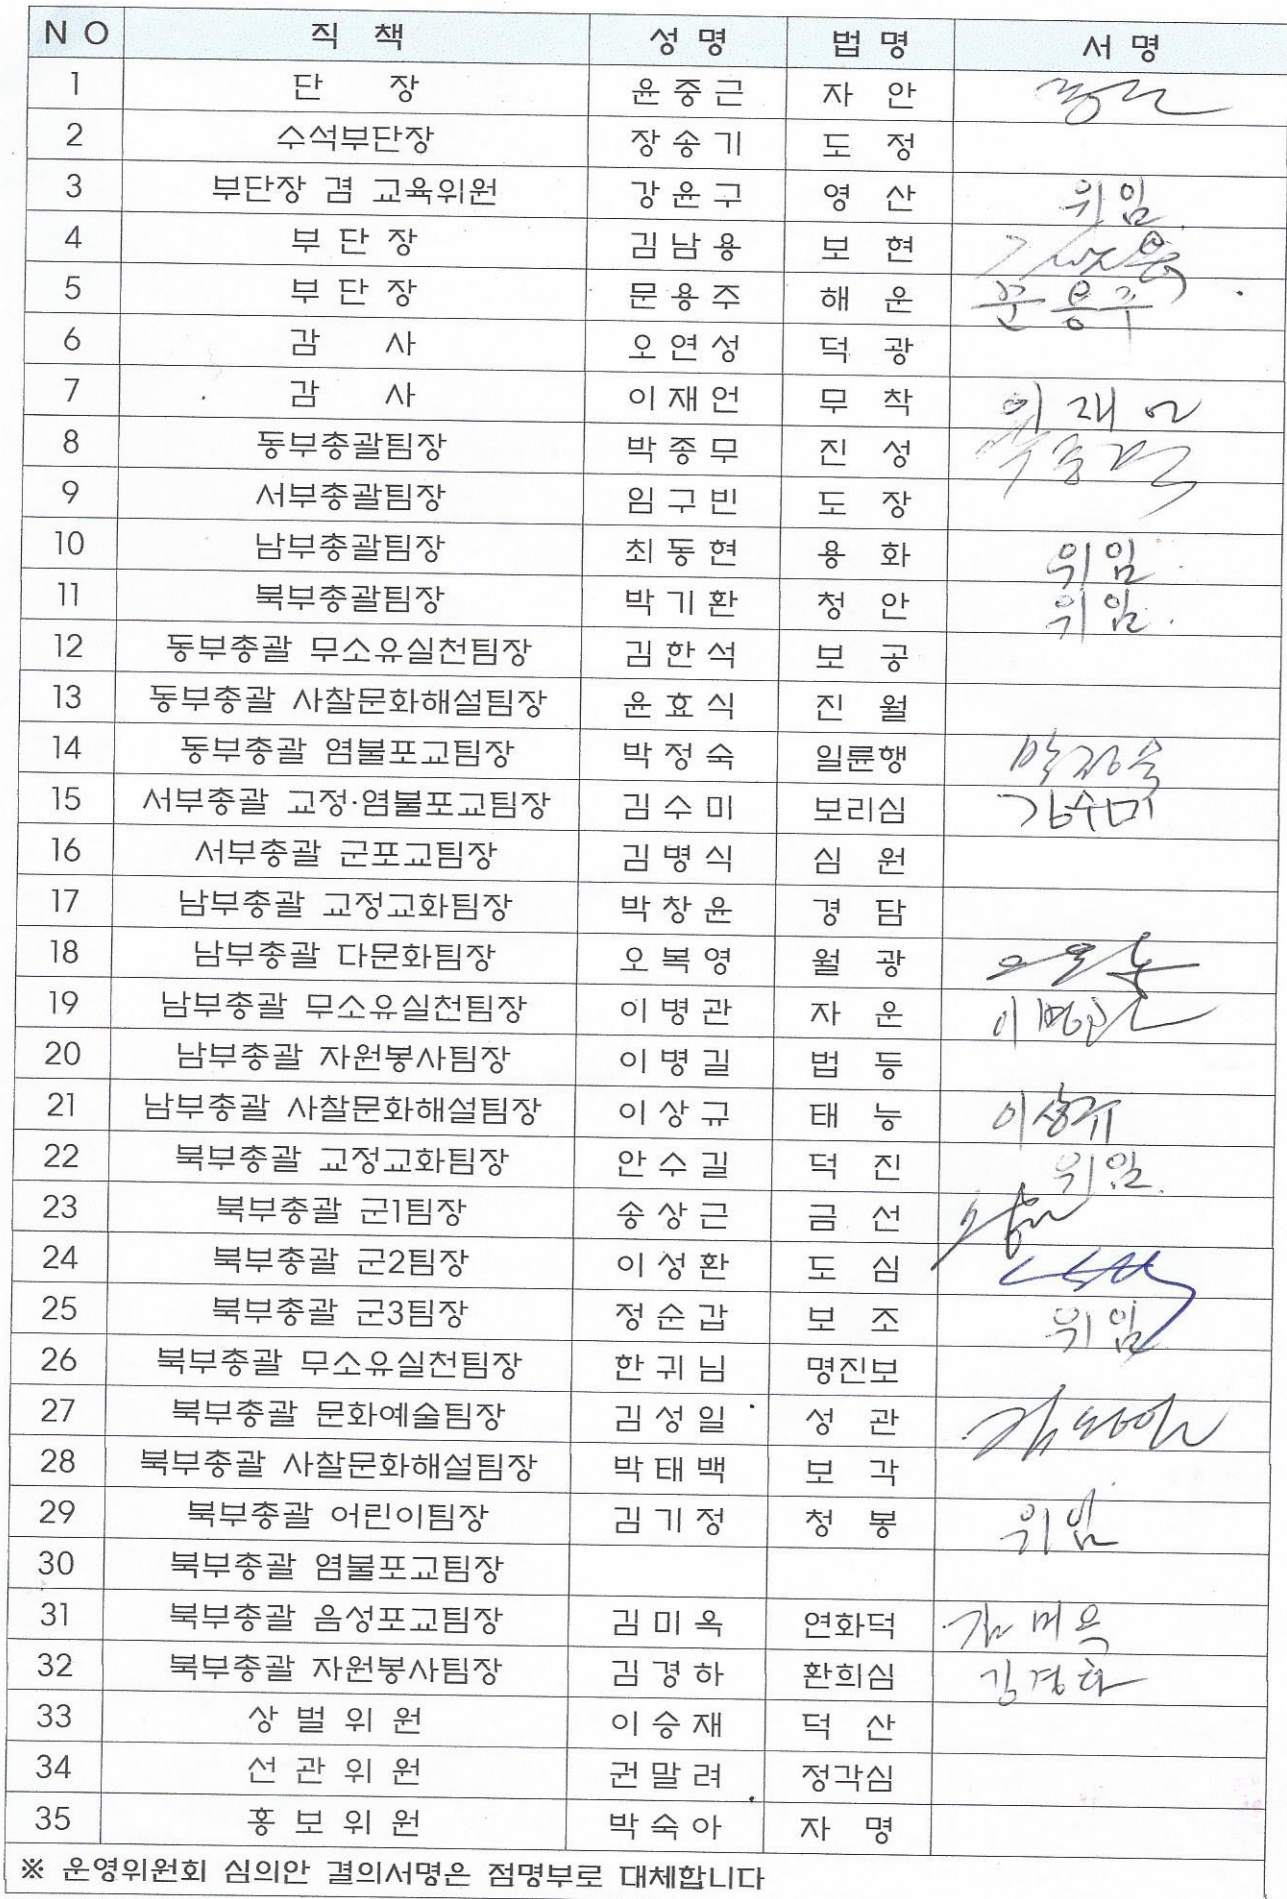 N O 직 책 성 명 법 명 서 명
1 단 장 윤 중 근 자 안
2 수석부단장 장 송 기 도 정
3 부단장 겸 교육위원 강 윤 구 영 산 위임
4 부 단 장 김 남 용 보 현
5 부 단 장 문 용 주 해 운 문용주
6 감 사 오 연 성 덕 광
7 감 사 이 재 언 무 착 이재언
8 동부총괄팀장 박 종 무 진 성
9 서부총괄팀장 임 구 빈 도 장
10 남부총괄팀장 최 동 현 용 화 위임
11 북부총괄팀장 박 기 환 청 안 위임
12 동부총괄 무소유실천팀장 김 한 석 보 공
13 동부총괄 사찰문화해설팀장 윤 효 식 진 월
14 동부총괄 염불포교팀장 박 정 숙 일륜행 박정숙
15 서부총괄 교정·염불포교팀장 김 수 미 보리심 김수미
16 서부총괄 군포교팀장 김 병 식 심 원
17 남부총괄 교정교화팀장 박 창 윤 경 담
18 남부총괄 다문화팀장 오 복 영 월 광
19 남부총괄 무소유실천팀장 이 병 관 자 운 이병관
20 남부총괄 자원봉사팀장 이 병 길 법 등
21 남부총괄 사찰문화해설팀장 이 상 규 태 능 이상규
22 북부총괄 교정교화팀장 안 수 길 덕 진 위임
23 북부총괄 군1팀장 송 상 근 금 선
24 북부총괄 군2팀장 이 성 환 도 심
25 북부총괄 군3팀장 정 순 갑 보 조 위임
26 북부총괄 무소유실천팀장 한 귀 님 명진보
27 북부총괄 문화예술팀장 김 성 일 성 관
28 북부총괄 사찰문화해설팀장 박 태 백 보 각
29 북부총괄 어린이팀장 김 기 정 청 봉 위임
30 북부총괄 염불포교팀장
31 북부총괄 음성포교팀장 김 미 옥 연화덕 김미옥
32 북부총괄 자원봉사팀장 김 경 하 환희심 김경하
33 상 벌 위 원 이 승 재 덕 산
34 선 관 위 원 권 말 려 정각심
35 홍 보 위 원 박 숙 아 자 명
※ 운영위원회 심의안 결의서명은 점명부로 대체합니다